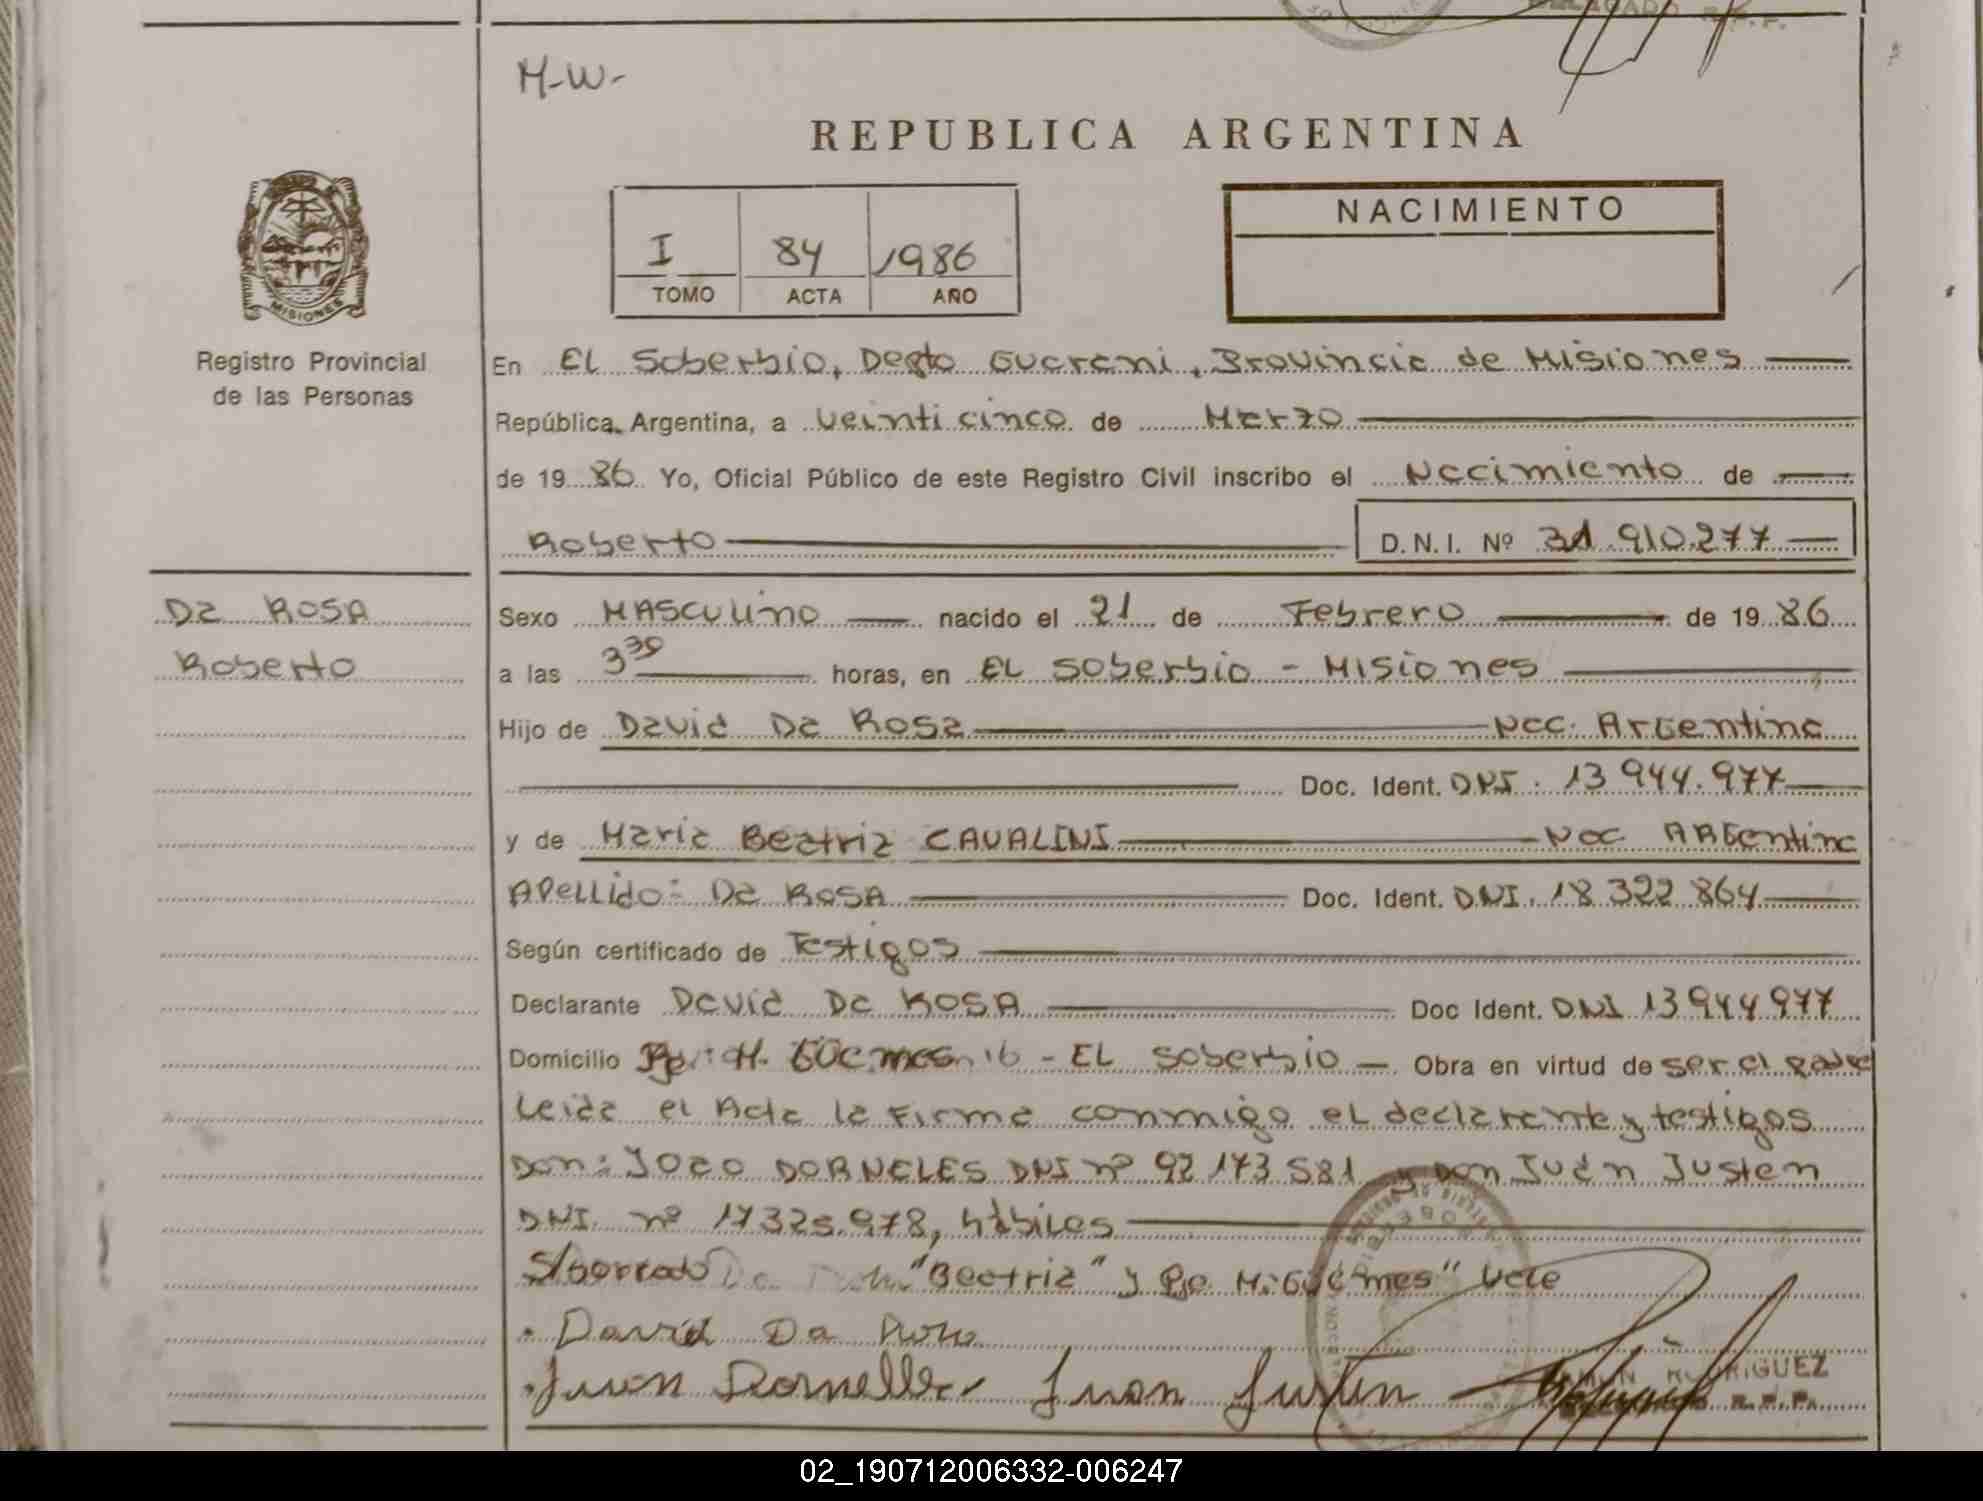 M-W-
REPUBLICA ARGENTINA
NACIMIENTO
I 84 1986
TOMO ACTA AÑO
MISIONES
Registro Provincial
de las Personas
En EL Soberbio, Depto Guarani, Provincia de Misiones
República Argentina, a veinticinco de Marzo
de 1986 Yo, Oficial Público de este Registro Civil inscribo el Nacimiento de
Roberto D.N.I. Nº 31.910.277
Da ROSA
Roberto
Sexo MAScuLino nacido el 21 de Febrero de 1986
a las 3 30 horas, en EL Soberbio - Misiones
Hijo de David Da Rosa Nac. Argentina
Doc. Ident. DNI. 13 944.977
y de Maria Beatriz CAVALINI Nac ARGentina
APeLLido: Da ROSA Doc. Ident. DNI. 18 322 864
Según certificado de Testigos
Declarante David Da ROSA Doc Ident. DNI 13 944 977
Domicilio H. Güemes 16 - EL Soberbio - Obra en virtud de ser el padre
Leida el Acta la Firma conmigo el declarante y testigos
Don: Joao DORNELES DNI nº 92 173 581 y Don Juan Justen
DNI nº 17325.978, hábiles
S/borrado "Beatriz" y Pje. M. Güemes" Vale
David Da Rosa
Juan Dornelles Juan Justen
RAMON RODRIGUEZ
R.P.P.
02_190712006332-006247